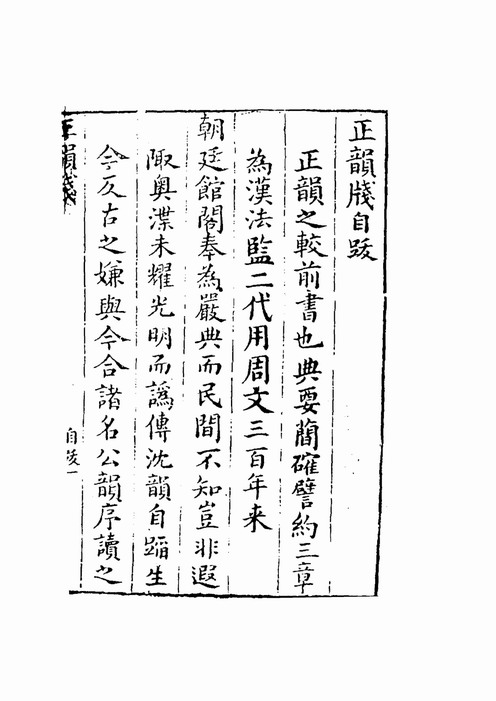 正韻牋自跋
正韻之較前書也典要蕳確譬約三章
為漢法監二代用周文三百年来
朝廷館閣奉為嚴典而民間不知豈非遐
陬奥渫未耀光明而譌傳沈韻自蹈生
今反古之嫌與今合諸名公韻序讀之
正韻牋
自跋一